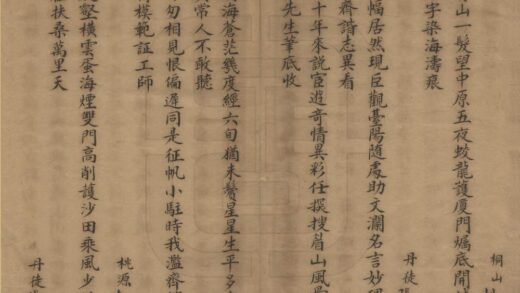 桐山
山一髮望中原五夜蛟龍護厦門爥底開
字染海濤痕
丹徒
幅居然現巨觀臺陽随處助文瀾名言妙
齊諧志異看
十年來說宦遊奇情異彩任搜眉山風
先生筆底收
海蒼茫幾度經六旬猶未鬢星星生平多
常人不敢聽
勾相見恨偏遲同是征帆小駐時我濫齊
模範証工師
桃源
壑橫雲蛋海煙雙門高削護沙田乘風少
扶桑萬里天
丹徒